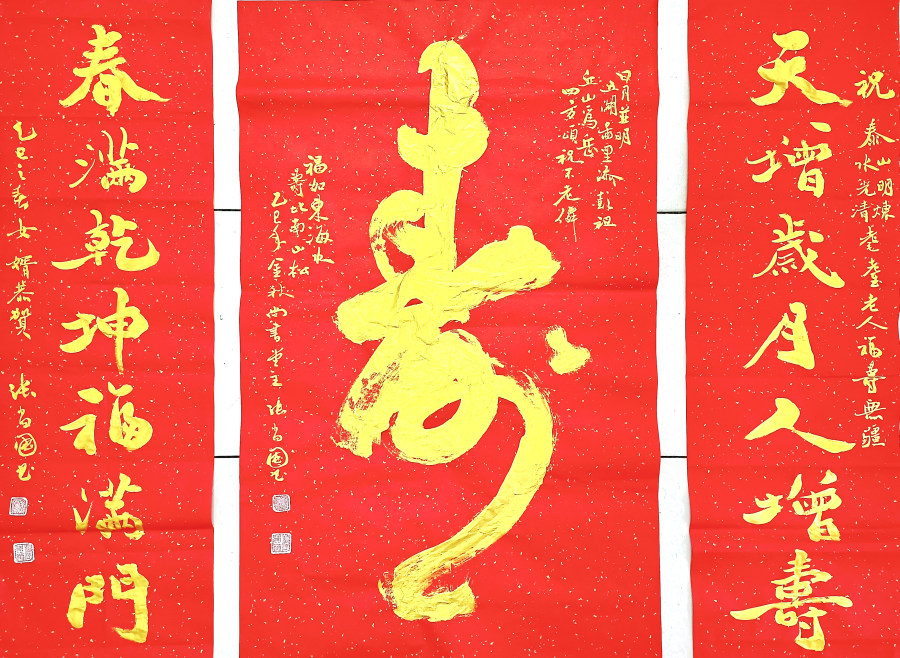 祝
泰山明煉
水光清耄耋老人福壽無疆
天增歲月人增壽
日月並明
五里添彭祖
丘山爲岳
四方頌祝不老
壽
福如東海水
壽比南山松
乙巳年金秋尚書堂主張尚國書
春滿乾坤福滿門
乙巳之春女婿恭賀張尚國書